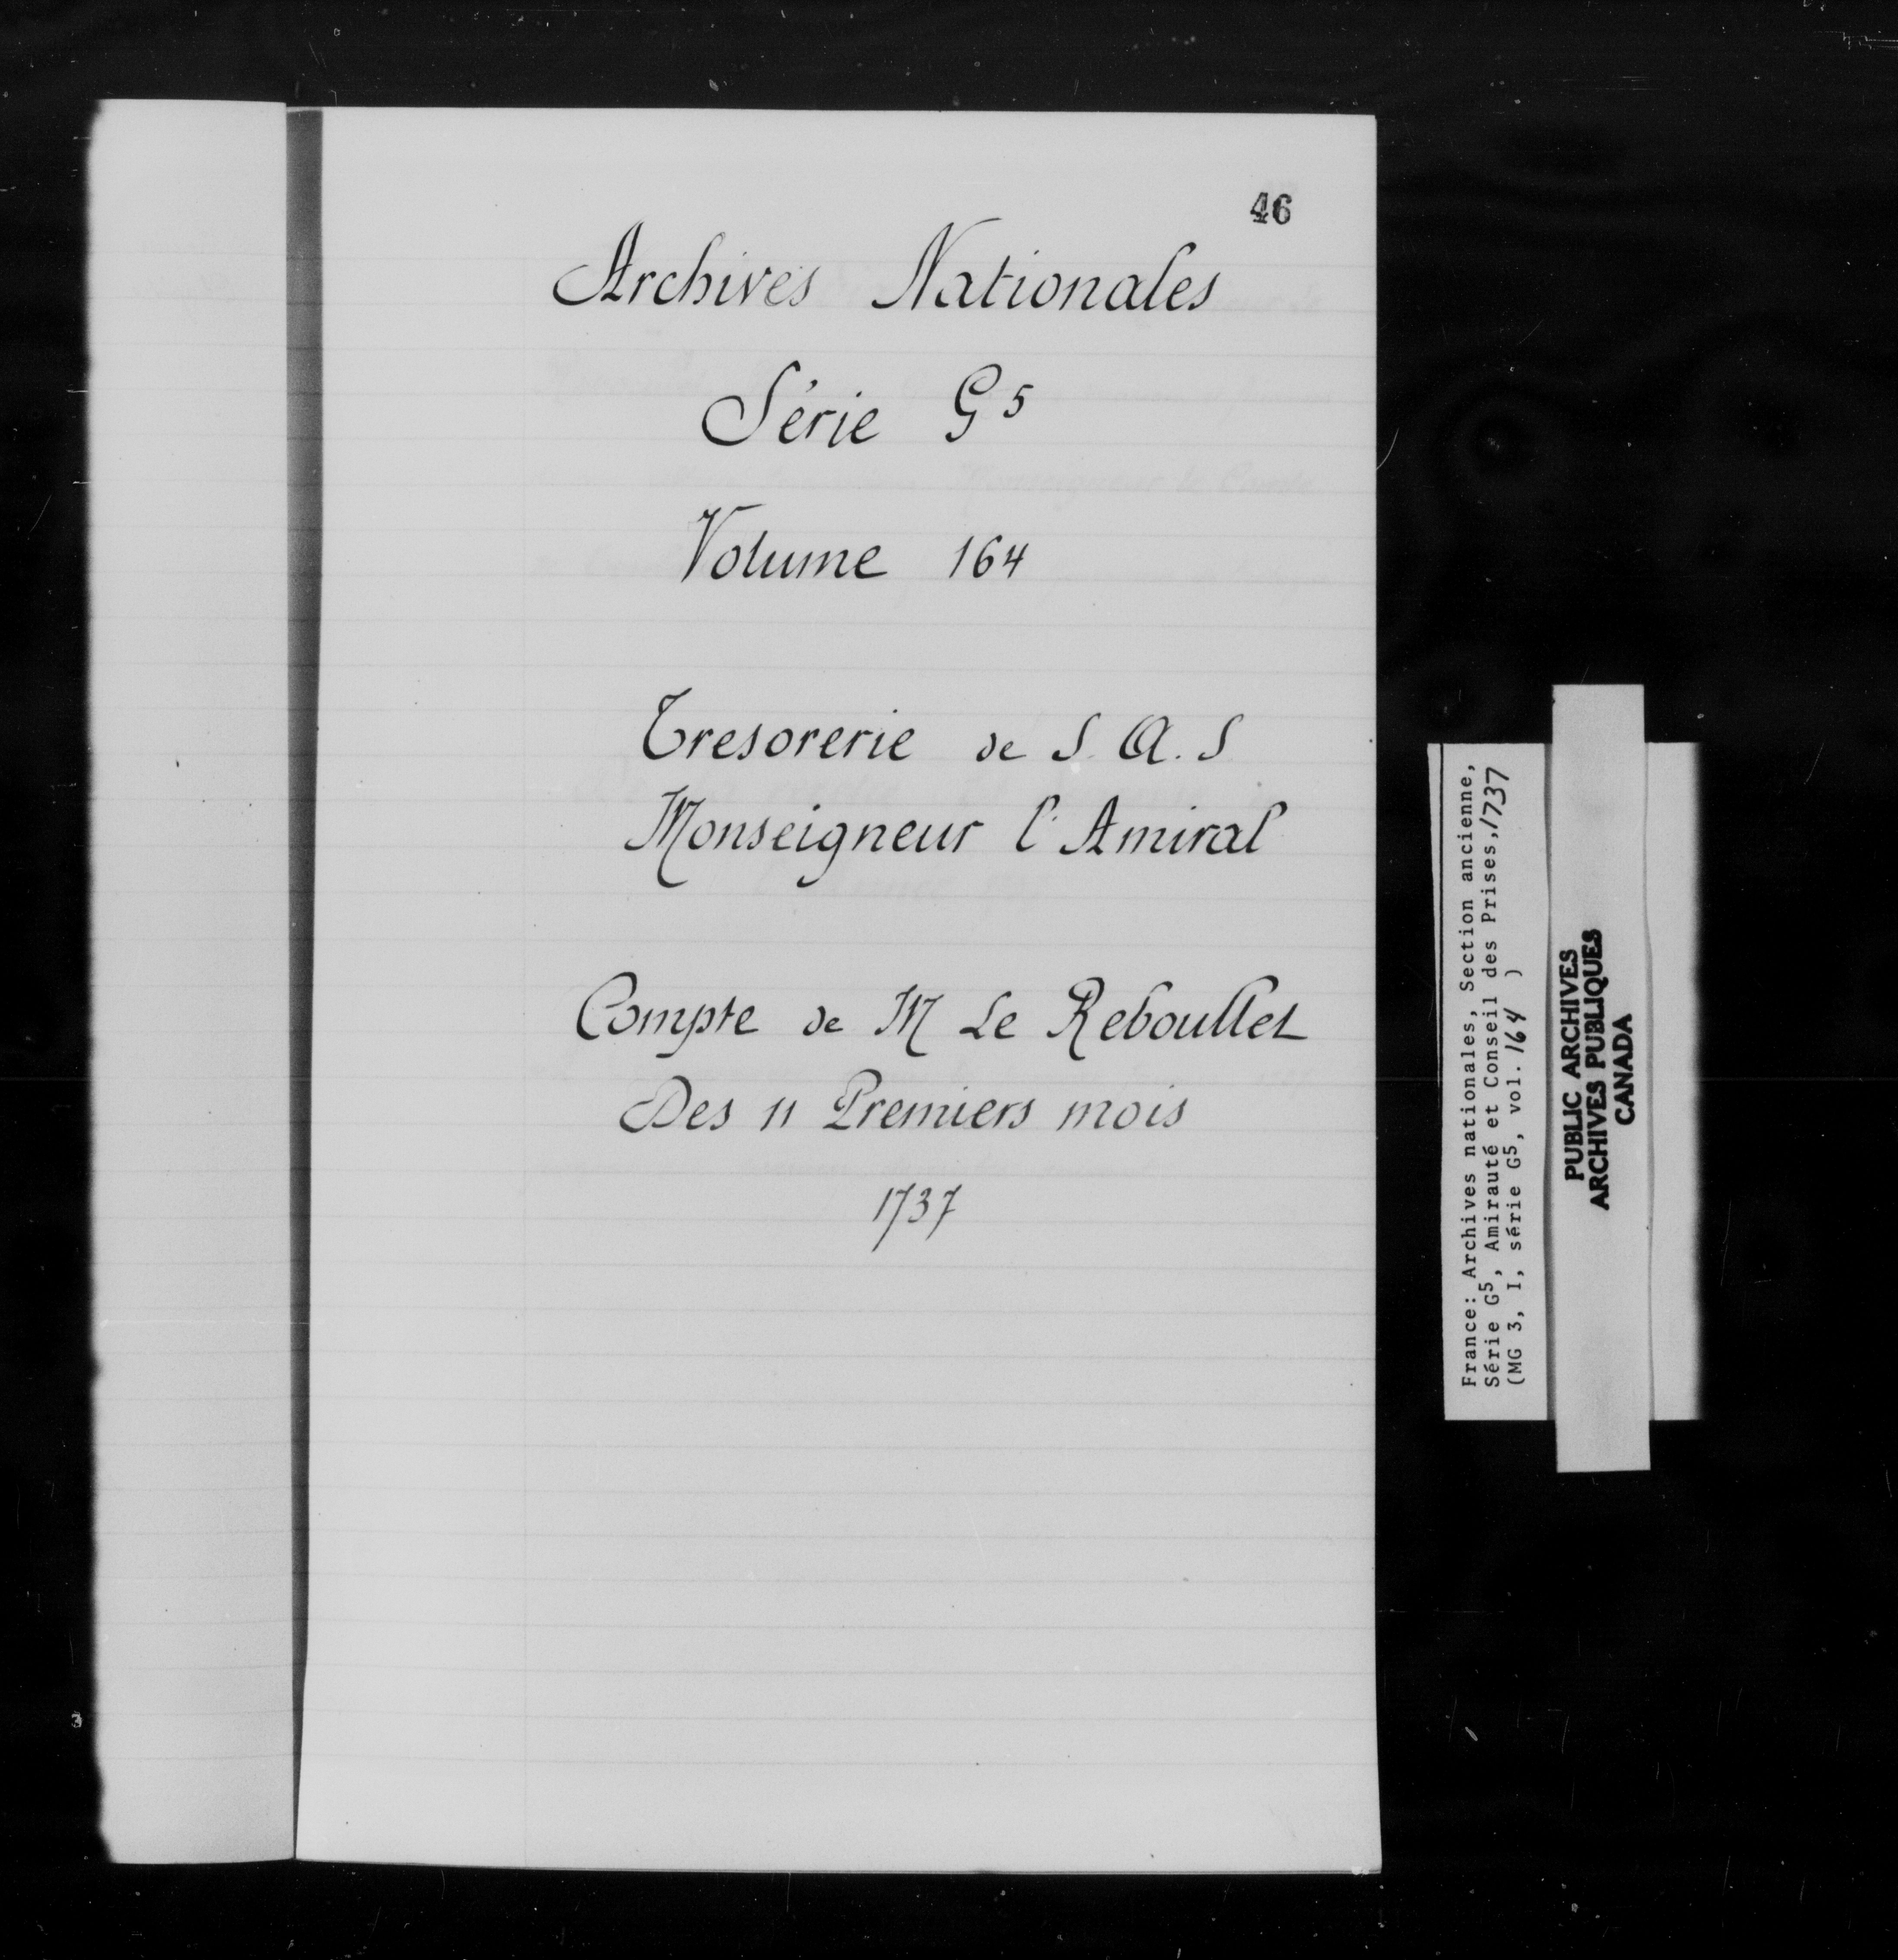 46
Archives Nationales
Série G⁵
Volume 164
Tresorerie de S. A. S
Monseigneur l'Amiral
Compte de M Le Reboullet
Des 11 Premiers mois
1737
France: Archives nationales, Section ancienne,
Série G⁵, Amirauté et Conseil des Prises, 1737
(MG 3, I, série G5, vol. 164 )
PUBLIC ARCHIVES
ARCHIVES PUBLIQUES
CANADA